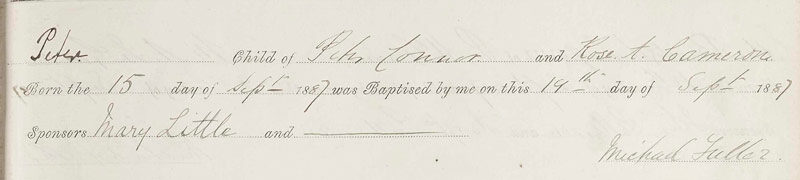 Peter. Child of Peter Connor and Rose A. Cameron.
Born the 15 day of Sept 1887 was Baptised by me on this 19th day of Sept 1887
Sponsors Mary Little and ———
Michael Fuller.